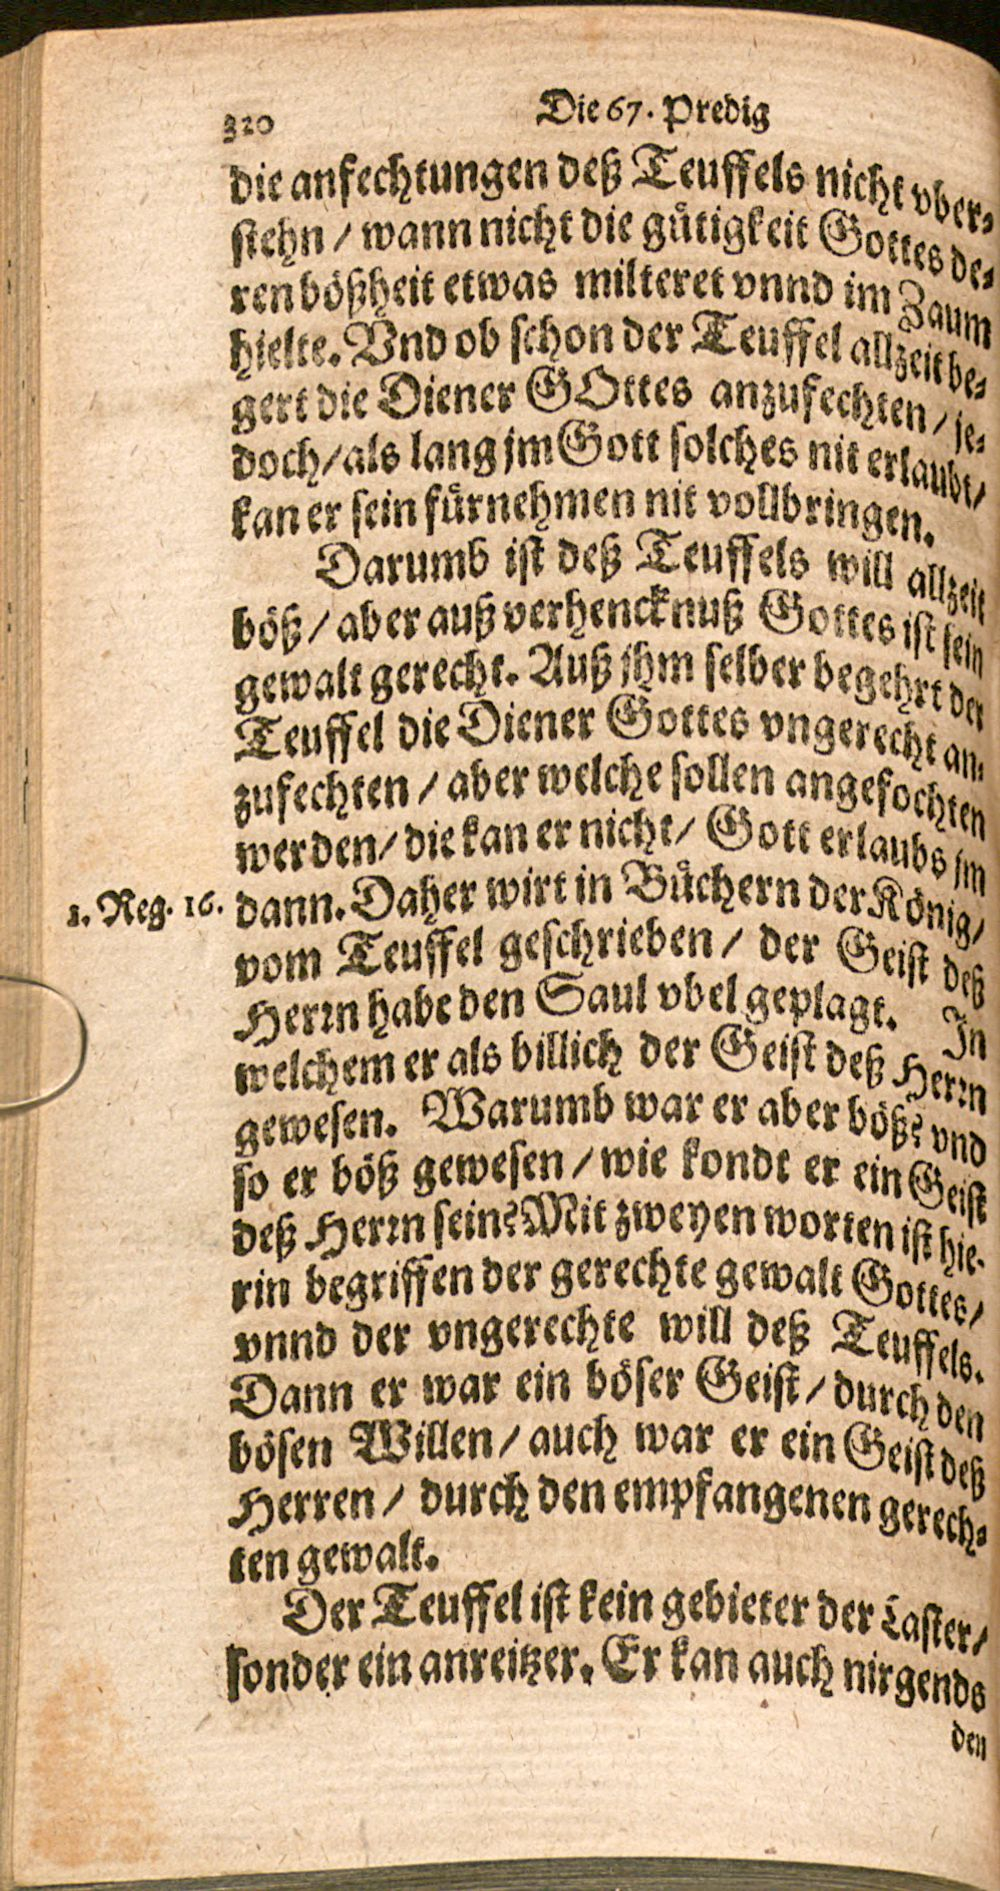 320
Die 67. Predig
die anfechtungen deß Teuffels nicht vber⸗
stehn / wann nicht die gůtigkeit Gottes de⸗
ren bößheit etwas milteret vnnd im Zaum
hielte. Vnd ob schon der Teuffel allzeit be⸗
gert die Diener GOttes anzufechten / je⸗
doch/ als lang jm Gott solches nit erlaubt/
kan er sein fůrnehmen nit vollbringen.
Darumb ist deß Teuffels will allzeit
böß / aber auß verhencknuß Gottes ist sein
gewalt gerecht. Auß jhm selber begehrt der
Teuffel die Diener Gottes vngerecht an⸗
zufechten / aber welche sollen angefochten
werden/ die kan er nicht/ Gott erlaubs jm
1. Reg. 16.
dann. Daher wirt in Bůchern der König/
vom Teuffel geschrieben / der Geist deß
Herrn habe den Saul vbel geplagt. In
welchem er als billich der Geist deß Herrn
gewesen. Warumb war er aber böß? vnd
so er böß gewesen / wie kondt er ein Geist
deß Herrn sein? Mit zweyen worten ist hie⸗
rin begriffen der gerechte gewalt Gottes/
vnnd der vngerechte will deß Teuffels.
Dann er war ein böser Geist / durch den
bösen Willen / auch war er ein Geist deß
Herren / durch den empfangenen gerech⸗
ten gewalt.
Der Teuffel ist kein gebieter der Laster/
sonder ein anreitzer. Er kan auch nirgends
den